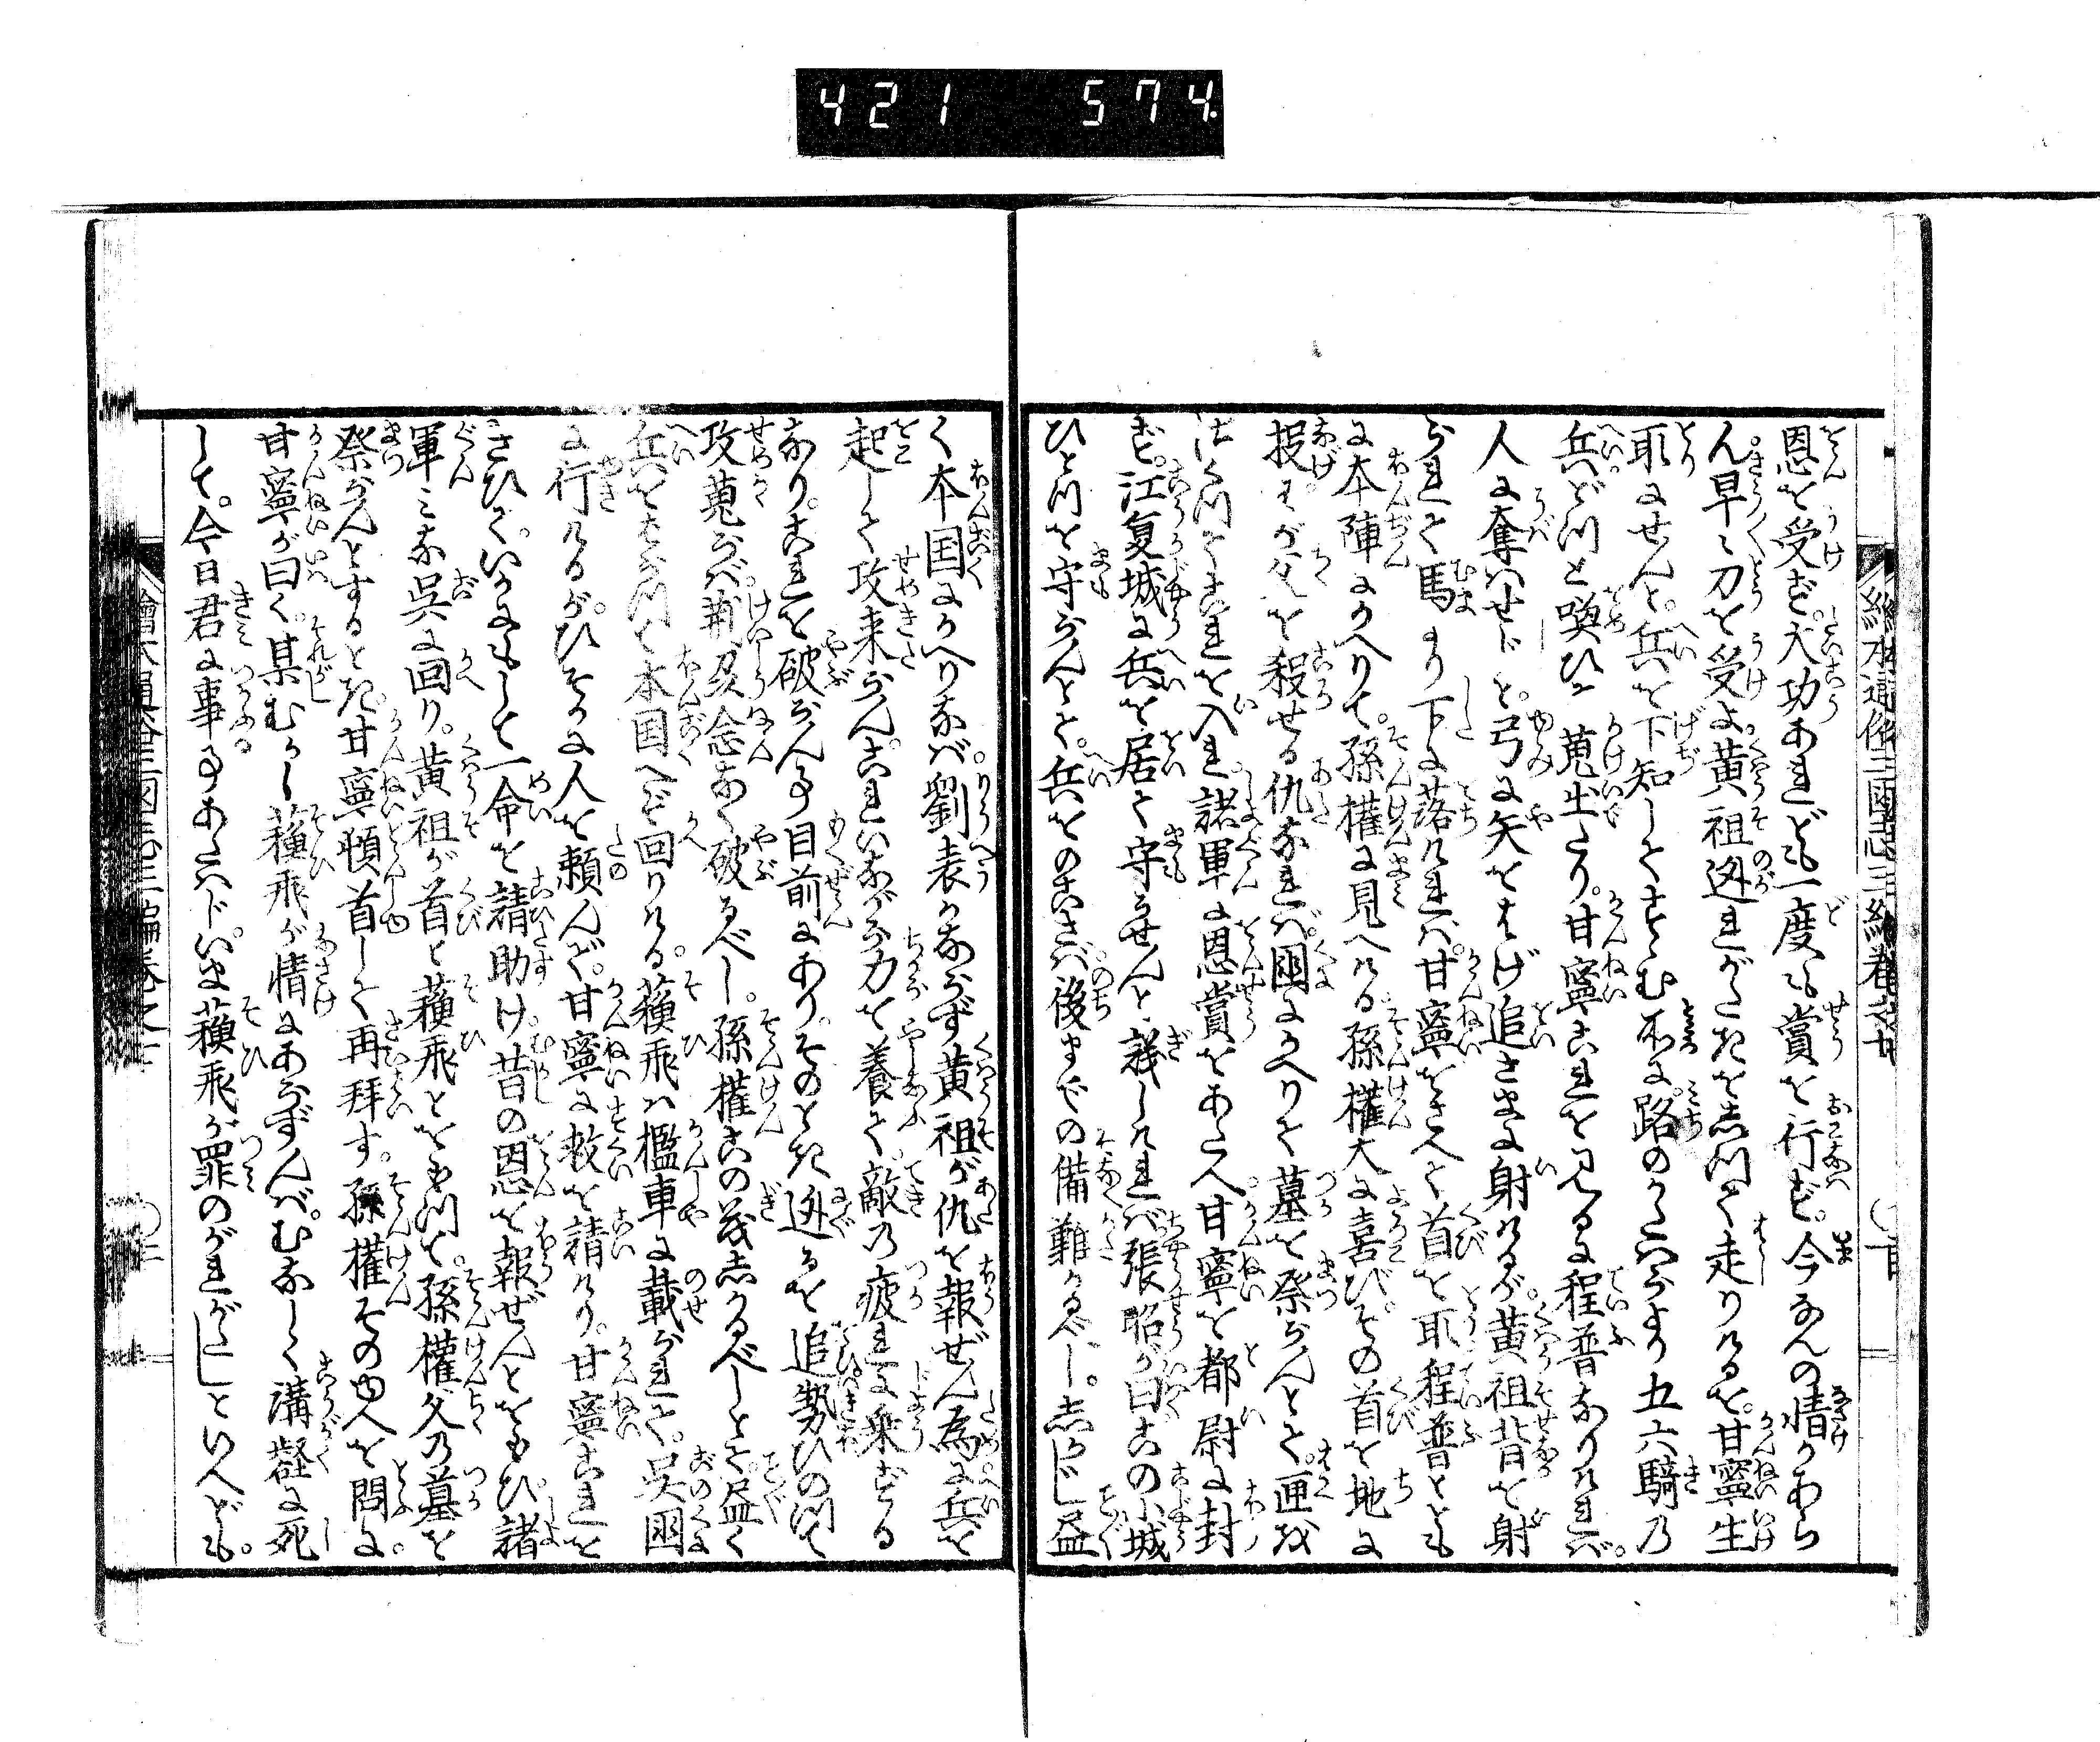 421 574.
恩を受ず。大功あれども一度も賞を行ず。今なんの情かあら
ん早く刀を受よ。黄祖迯れがたきをしつて走りける を。甘寧生
取にせんと。兵を下知してすゝむ所に。路のかたはらより五六騎の
兵どつと喚ひて蒐出たり。甘寧これを見るに程普なりければ。
人に奪はせじと。弓に矢をはげ追さまに射けるが。黄祖背を射
られて馬より下に落ければ。甘寧をさへて首を取程普とともに
に本陣にかへりて。孫権に見へける孫権大に喜び。その首を地に
投。わが父を殺せる仇なれば。國にかへりて墓を祭らんとて。匣を
つくつてこれを入。諸軍に恩賞をあたへ。甘寧を都尉に封
ず。江夏城に兵を居て守らせんと議しければ。張昭が曰この小城
ひとつを守らんとて。兵をのこさば。後までの備難かるべし。しかじ盡
く本国にかへりなば。劉表かならず黄祖が仇を報ぜん為に兵を
起して攻来らん。これいながら力を養て。敵の疲に乗ずる
なり。これを破らん事目前にあり。そのとき迯るを追勢ひのつて
攻蒐らば。荊州念なく破るべし。孫権この義しかるべしとて。盡く
兵をはなつて本国へぞ回りける。蘇飛は檻車に載られて。呉國
に行けるが。ひそかに人を頼んで。甘寧に救を請けり。甘寧これを
さひて。いかにもして一命を請助け。昔の恩を報ぜんとをもひ。諸
軍みな呉に回り。黄祖が首と蘇飛とをもつて。孫権父の墓を
祭らんとするとき。甘寧頓首して再拝す。孫権その由を問に。
甘寧が曰く。某むかし蘇飛が情にあらずんば。むなしく溝壑に死
して。今日君に事る事あたはじ。いま蘇飛が罪のがれがたしといへども。